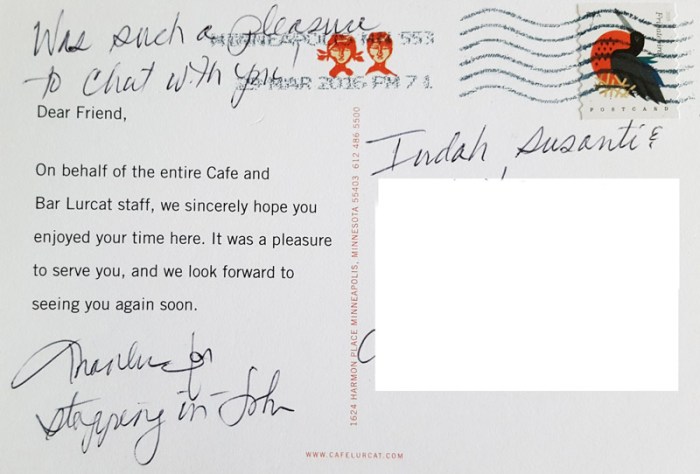 Was such a pleasure
to chat with you
MINNEAPOLIS MN 553
29 MAR 2016 PM 7 L
POSTCARD
Dear Friend,
On behalf of the entire Cafe and
Bar Lurcat staff, we sincerely hope you
enjoyed your time here. It was a pleasure
to serve you, and we look forward to
seeing you again soon.
Thanks for
stopping in - John
1624 HARMON PLACE MINNEAPOLIS, MINNESOTA 55403 612 486 5500
Indah Susanti &
WWW.CAFELURCAT.COM